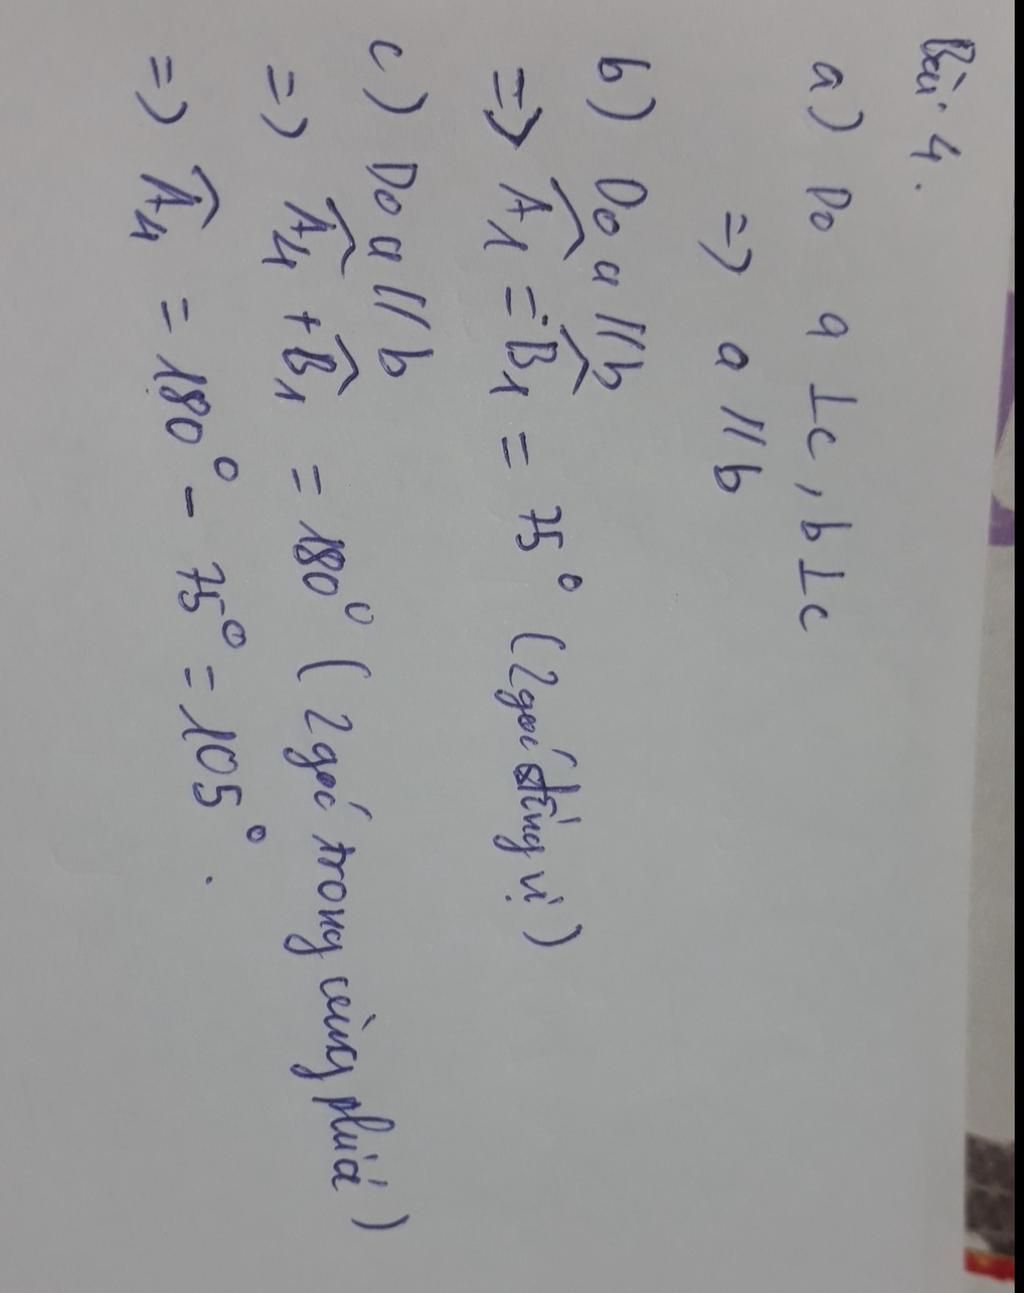 Bài 4.
a) Do a ⊥ c, b ⊥ c
=> a // b
b) Do a // b
=> Â₁ = B̂₁ = 75° (2 góc đồng vị)
c) Do a // b
=> Â₄ + B̂₁ = 180° (2 góc trong cùng phía)
=> Â₄ = 180° - 75° = 105°.